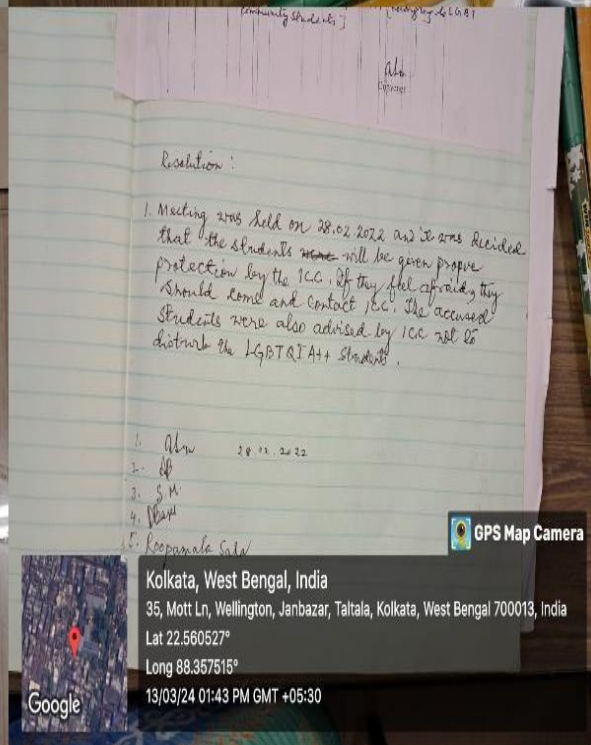 Community Students]
LGBT
Convenor
Resolution :
1. Meeting was held on 28.02.2022 and it was decided
that the students were will be given proper
protection by the ICC. If they feel afraid, they
should come and contact ICC. The accused
students were also advised by ICC not to
disturb the LGBTQIA++ students.
1. 28.02.2022
2.
3. S M
4.
5. Roopamala Saha
GPS Map Camera
Kolkata, West Bengal, India
35, Mott Ln, Wellington, Janbazar, Taltala, Kolkata, West Bengal 700013, India
Lat 22.560527°
Long 88.357515°
13/03/24 01:43 PM GMT +05:30
Google